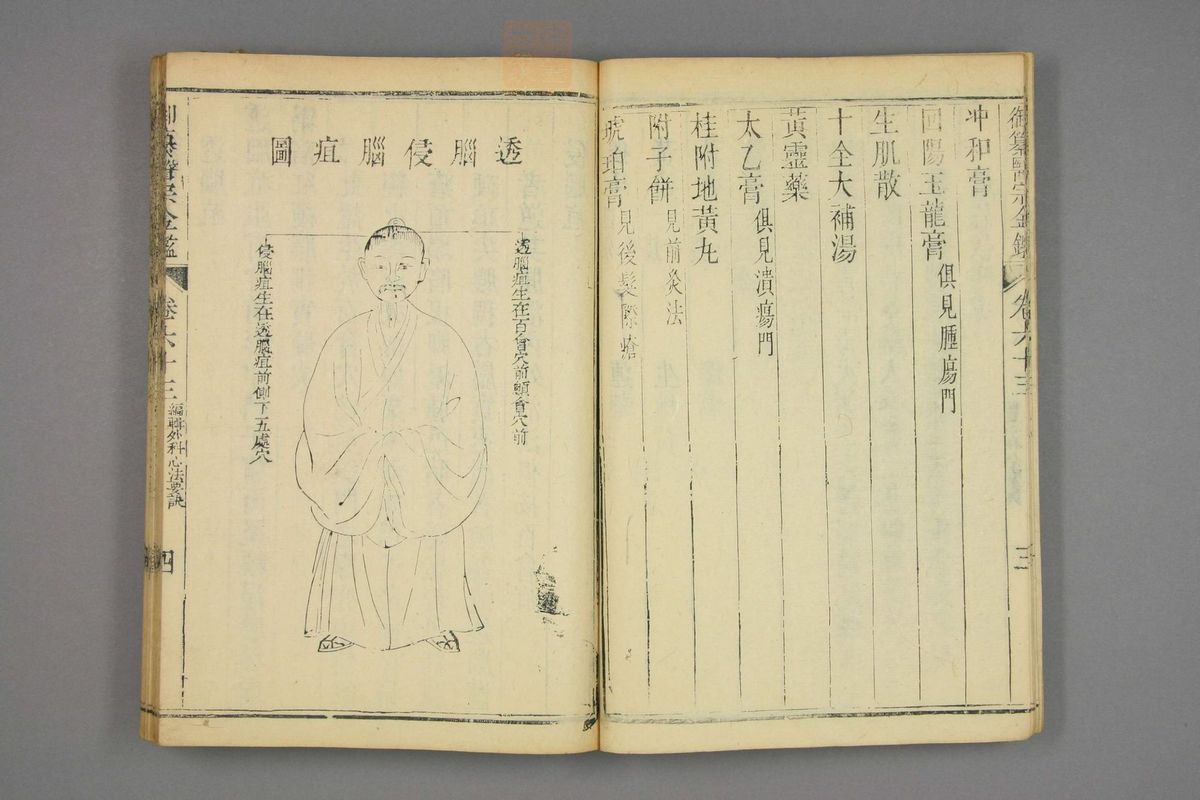 御纂醫宗金鑑
卷六十三
三
冲和膏
回陽玉龍膏 俱見腫瘍門
生肌散
十全大補湯
黃靈藥
太乙膏 俱見潰瘍門
桂附地黃丸
附子餅 見前灸法
琥珀膏 見後髮際瘡
透腦侵腦疽圖
透腦疽生在百會穴前顖會穴前
侵腦疽生在透腦疽前側下五處穴
醫宗金鑑
卷六十三
編輯外科心法要訣
四